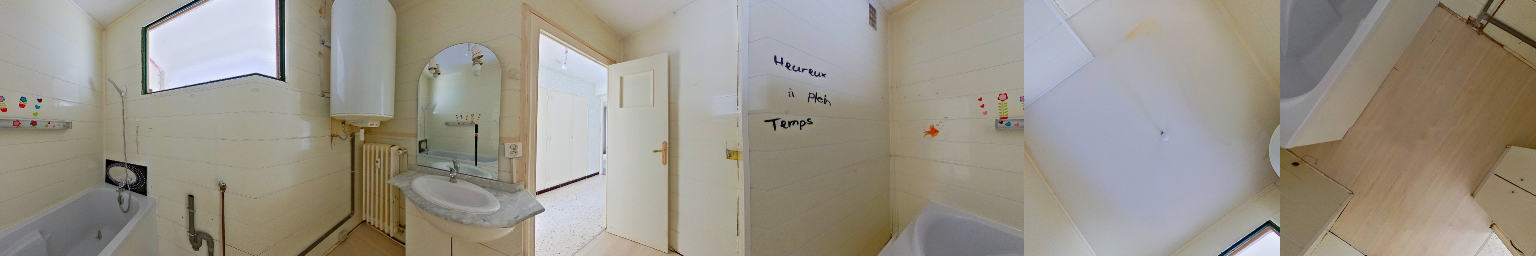 Heureux
à plein
Temps